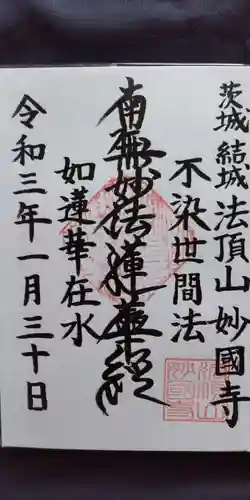 茨城 結城 法頂山 妙國寺
不染世間法
南無妙法蓮華経
如蓮華在水
令和三年一月三十日